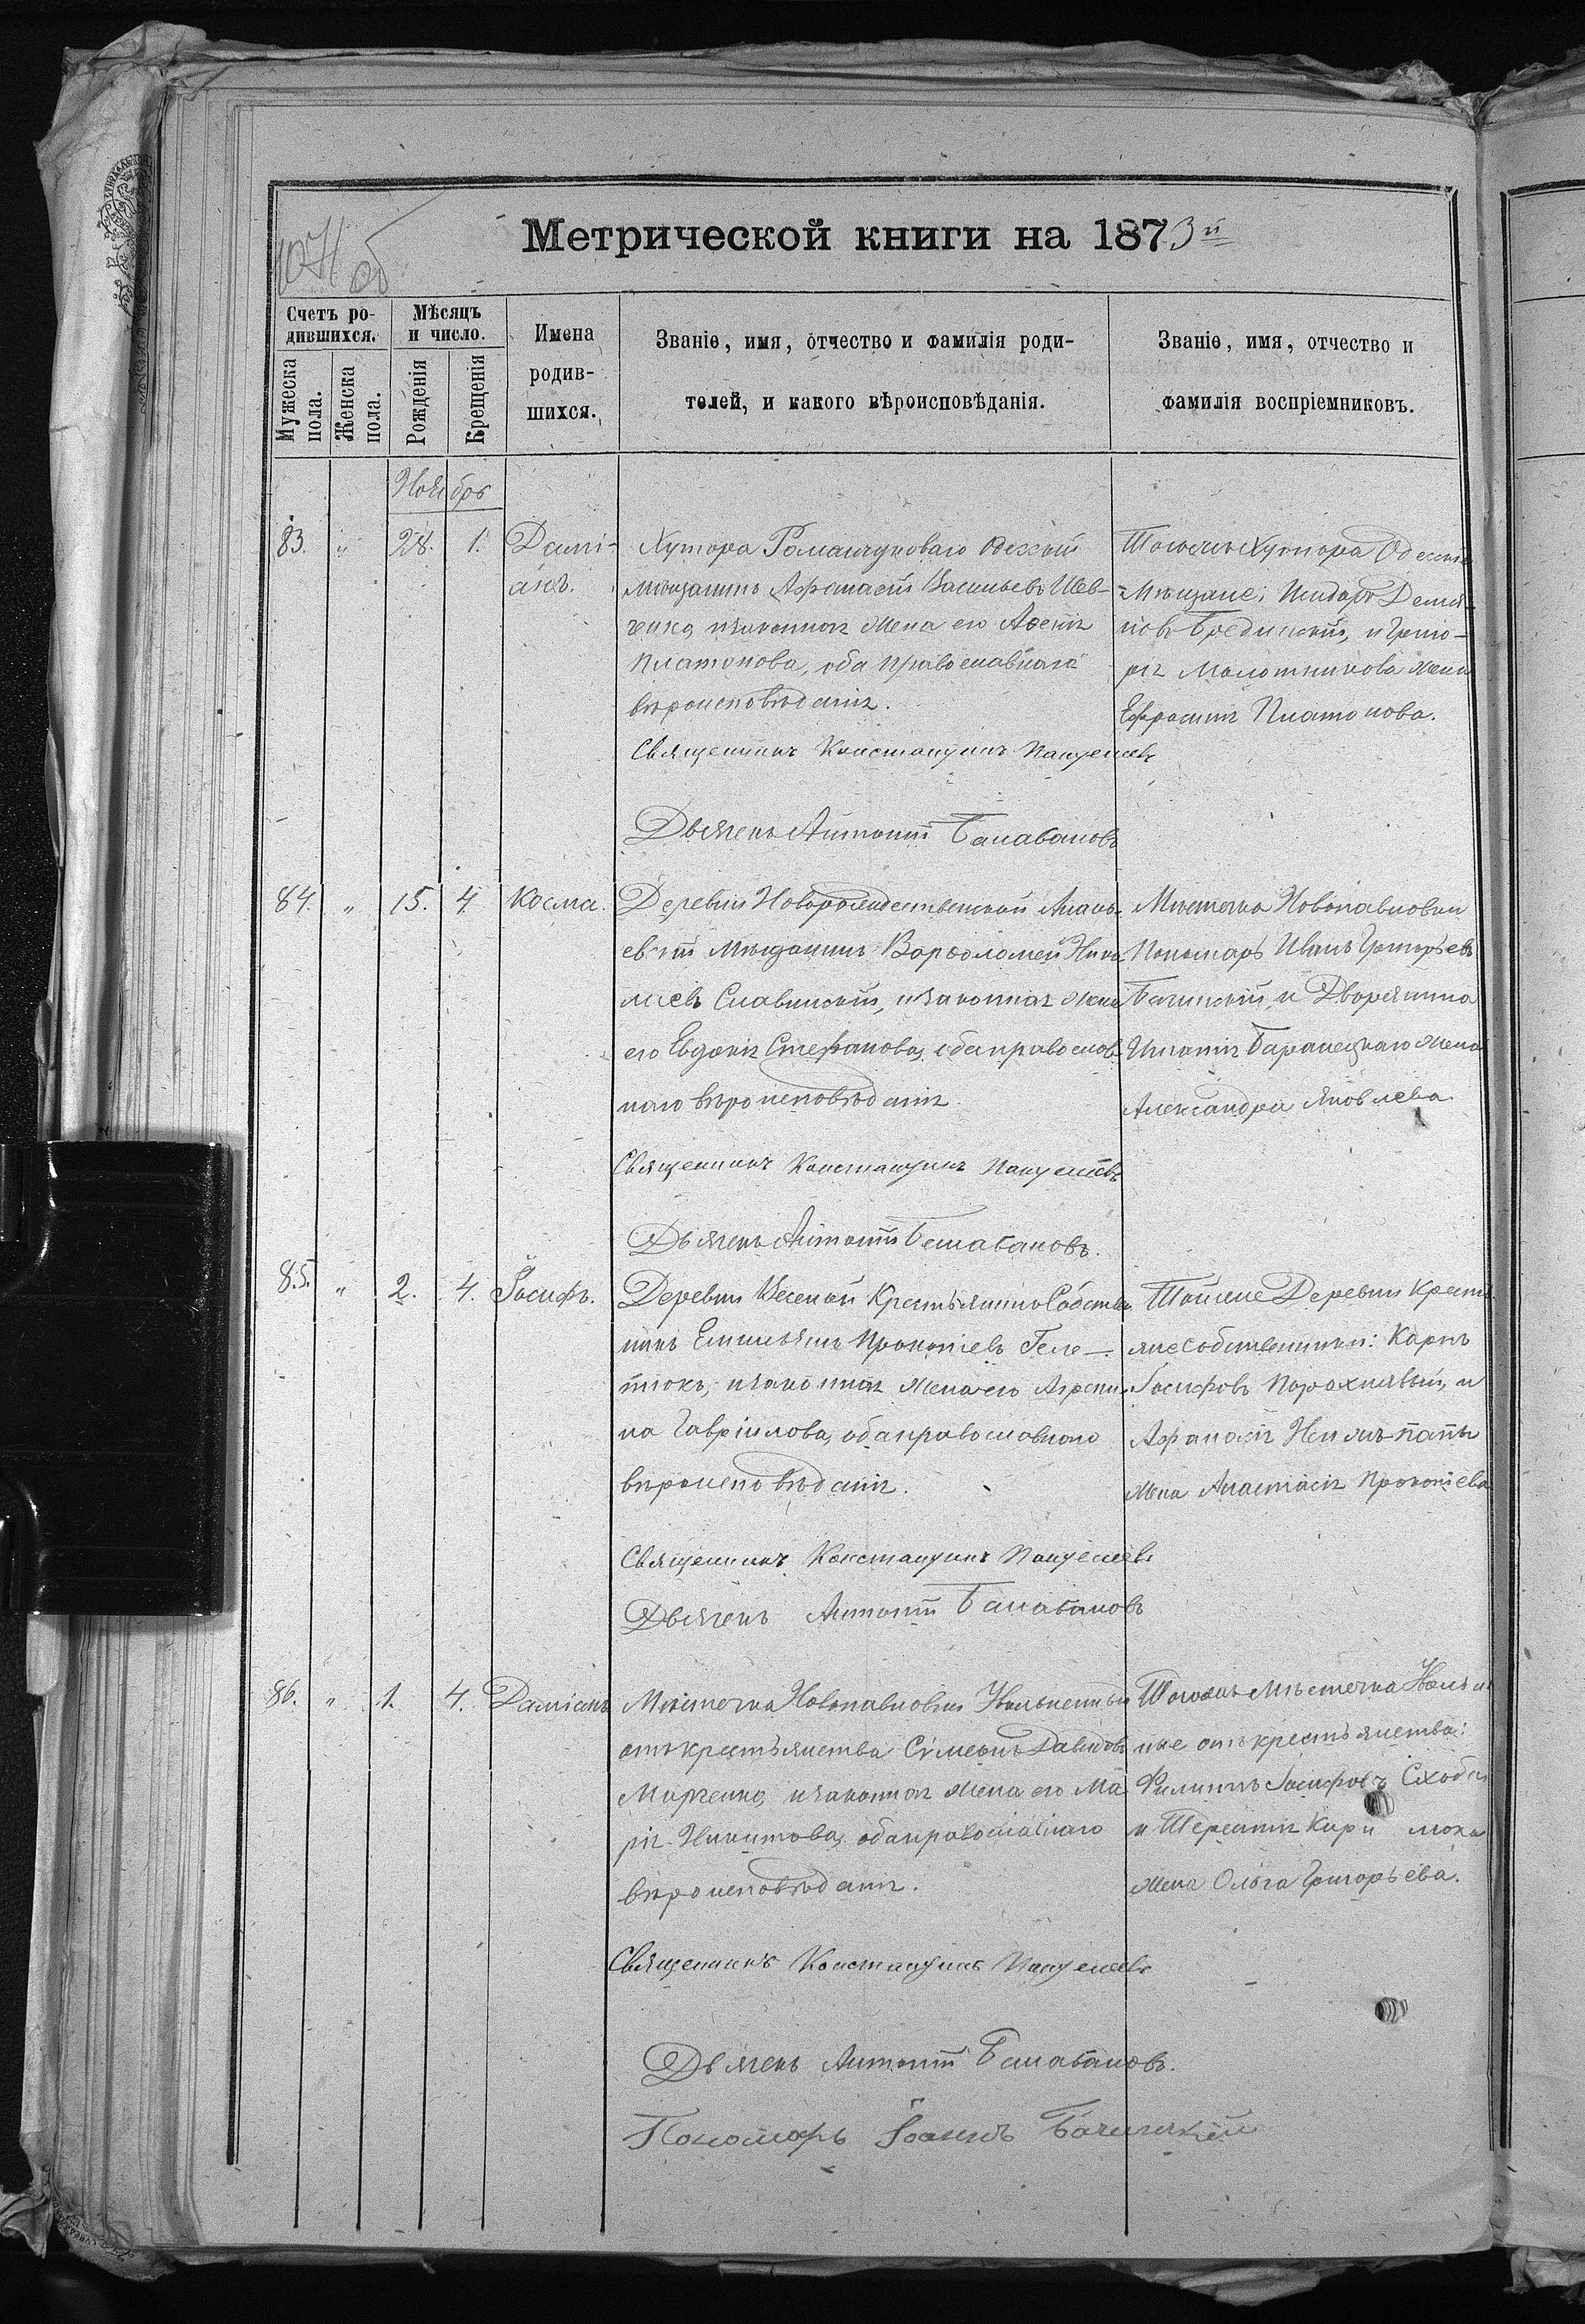 Метрической книги на 1873й
Счетъ ро-
дившихся.
Мужеска
пола.
Женска
пола.
Мѣсяцъ
и число.
Рожденія
Крещенія
Имена
родив-
шихся.
Званіе, имя, отчество и фамилія роди-
телей, и какого вѣроисповѣданія.
Званіе, имя, отчество и
фамилія воспріемниковъ.
Ноябрь
83. " 28. 1. Дамі-
анъ.
Хутора Романчуковаго Одескій
мѣщанинъ Афанасій Васильевъ Шев-
ченко, и законная жена его Агенія
Платонова, оба православнаго
вѣроисповѣданія.
Священникъ Константинъ
Дьячекъ Антоній Балабановъ
Тогожъ Хутора Одескіе
Мѣщане: Исидоръ Демья-
новъ Бѣдинскій, и Григо-
рія Молотникова жена
Ефросинія Платонова.
84. " 15. 4. Косма.
Деревни Новорождественской Анань-
евскій Мѣщанинъ Варѳоломей Нико-
лаевъ Славинскій, и законная жена
его Евдокія Стефанова, оба православ-
наго вѣроисповѣданія.
Священникъ Константинъ
Дьячекъ Антоній Балабановъ.
Мѣстечка Новопавловки
Пономарь Иванъ Григорьевъ
Бачинскій, и Дворянина
Игнатія Баранецкаго жена
Александра Яковлева.
85. " 2. 4. Іосифъ.
Деревни Веселой Крестьянинъ Собствен
никъ Емильянъ Прокопіевъ Геле-
тюкъ, и законная жена его Агрепи-
на Гавріилова, оба православнаго
вѣроисповѣданія.
Священникъ Константинъ
Дьячекъ Антоній Балабановъ
Тойже Деревни Кресть
яне Собственники: Карпъ
Іосифовъ Порохнявый, и
Афанасія
жена Анастасія Прокопіева
86. " 1. 4. Даміанъ
Мѣстечка Новопавловки
отъ крестьянства Сѵмеонъ Давидовъ
Марченко, и законная жена его Ма-
рія Никитова, оба православнаго
вѣроисповѣданія.
Священникъ Константинъ
Дьячекъ Антоній Балабановъ.
Пономарь Іоаннъ Бачинскій
Тогожъ Мѣстечка
отъ крестьянства:
Филиппъ Іосифовъ
и Терентія
жена Ольга Григорьева.